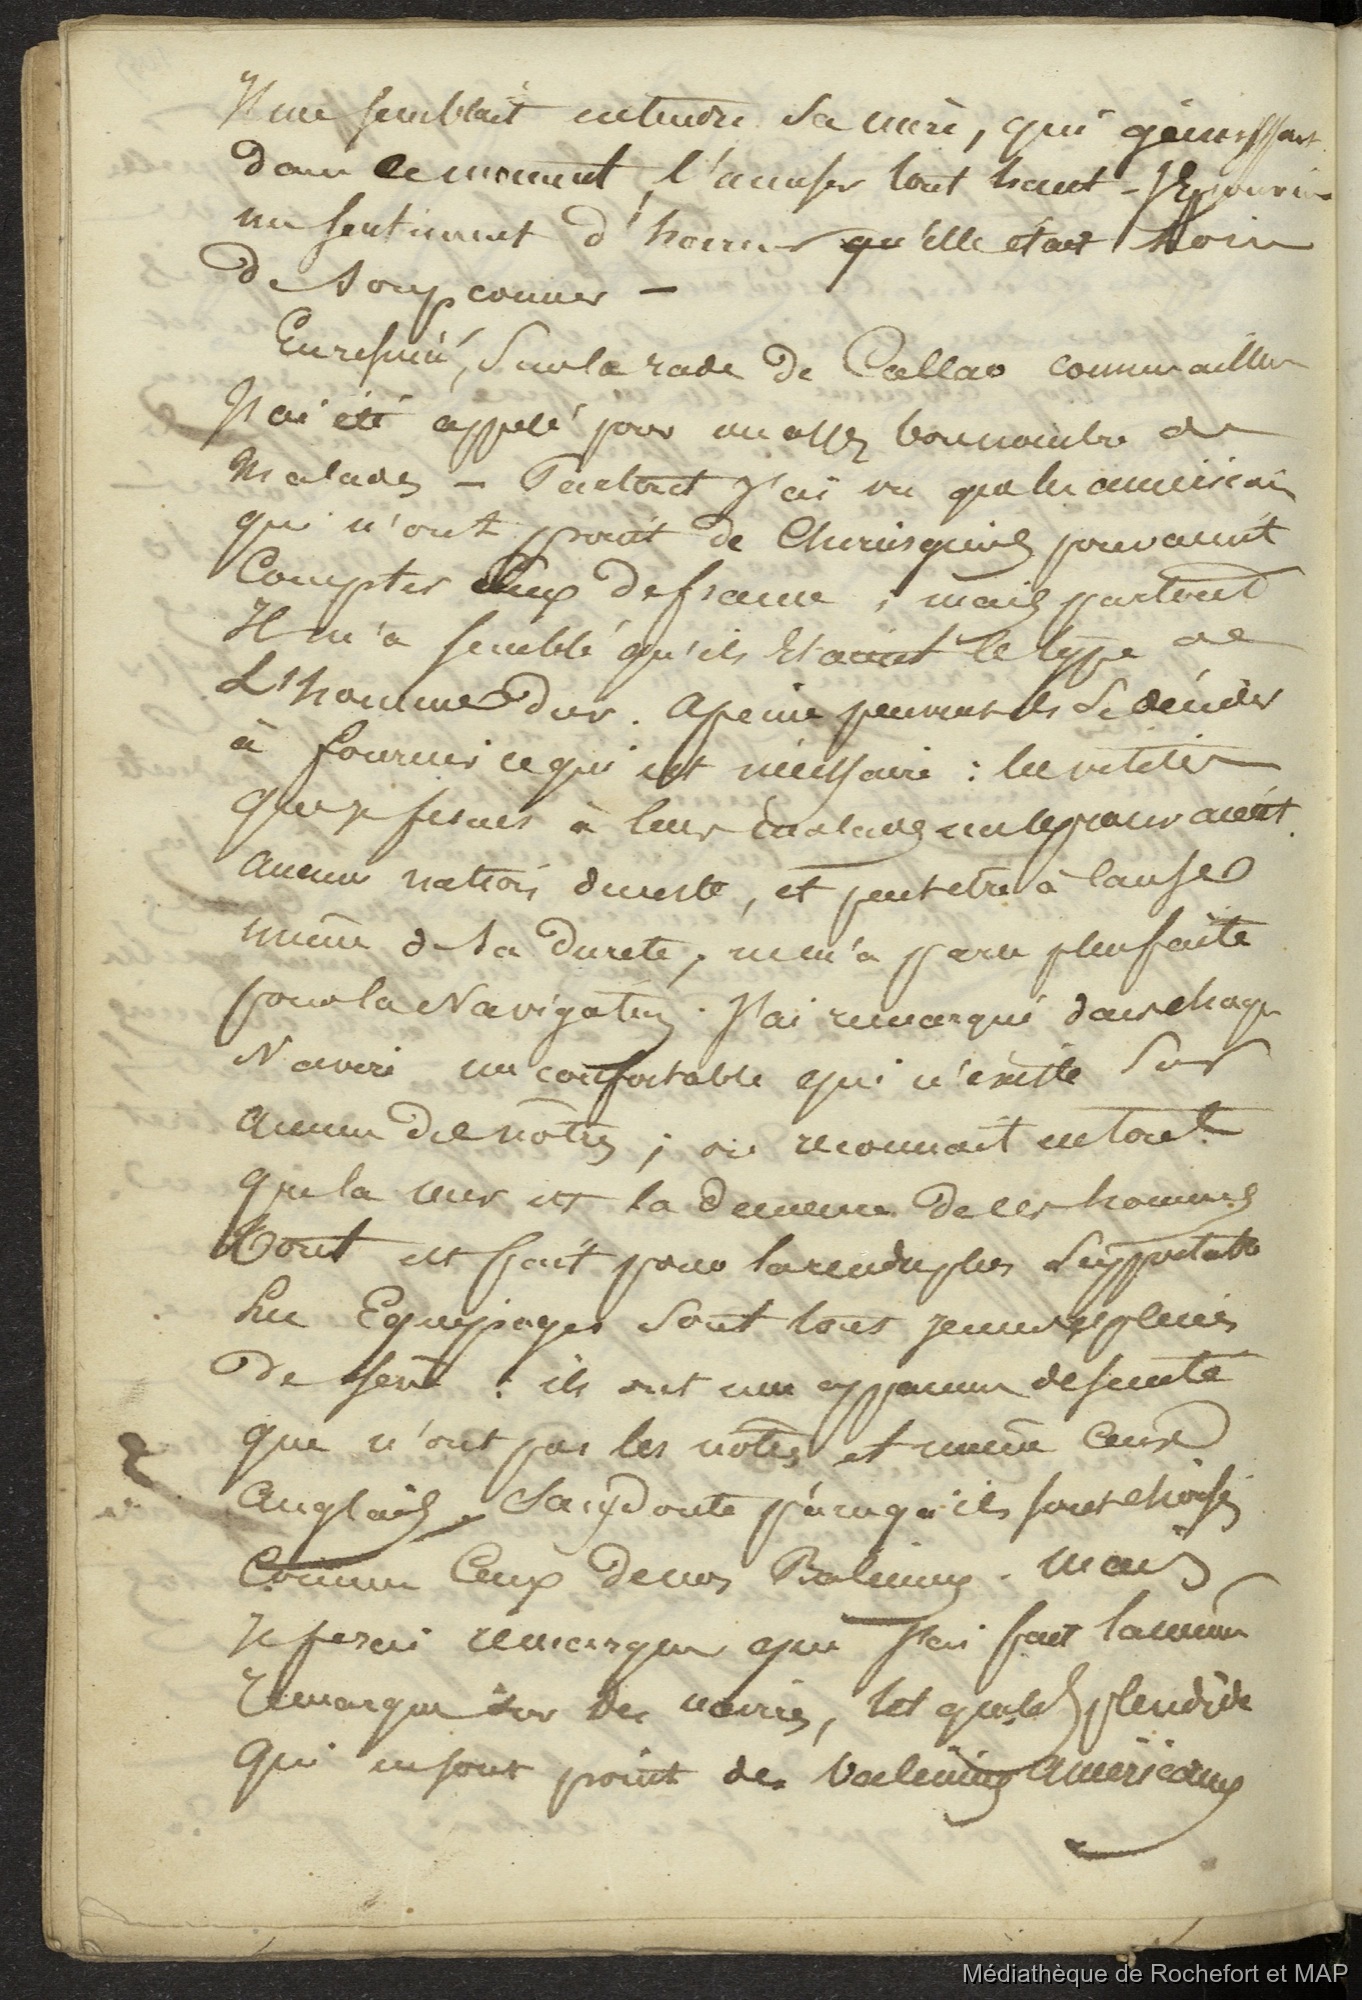 Il me semblait entendre sa mère, qui gémissait
dans ce moment, l'accuser tout haut - J'éprouvais
un sentiment d'horreur qu'elle était loin
de soupconner -
En resumé, Sur la rade de Callao comme ailleurs
J'ai été appelé pour un assez bon nombre de
Malades - Partout J'ai vu que les americains
qui n'ont point de Chirurgiens pouvaient
Compter Ceux de france, mais partout
Il m'a semblé qu'ils Etaient le type de
L'homme Dur. apeine peuvent ils Se décider
à fournir ce qui est nécessaire : les visites
que je fesais à leurs malades
aucune nation du reste, et peut etre à cause
même de Sa Dureté, ne m'a paru plus faite
pour la Navigation. J'ai remarqué dans chaque
Navire un confortable qui n'existe Sur
aucun des nôtres ; on reconnait en tout
que la mer est la demeure de ces hommes
Tout est fait pour la rendre plus Supportable
Les Equipages Sont tous jeunes et pleins
De sève : ils ont une apparence de santé
que n'ont pas les nôtres et même ceux
anglais. Sans doute parcequ'ils sont choisis
Comme Ceux de nos Baleiniers. Mais
je ferai remarquer que J'ai fait la même
Remarque sur des navires, tels que le Splendide
qui ne sont point des baleiniers américains
Médiathèque de Rochefort et MAP